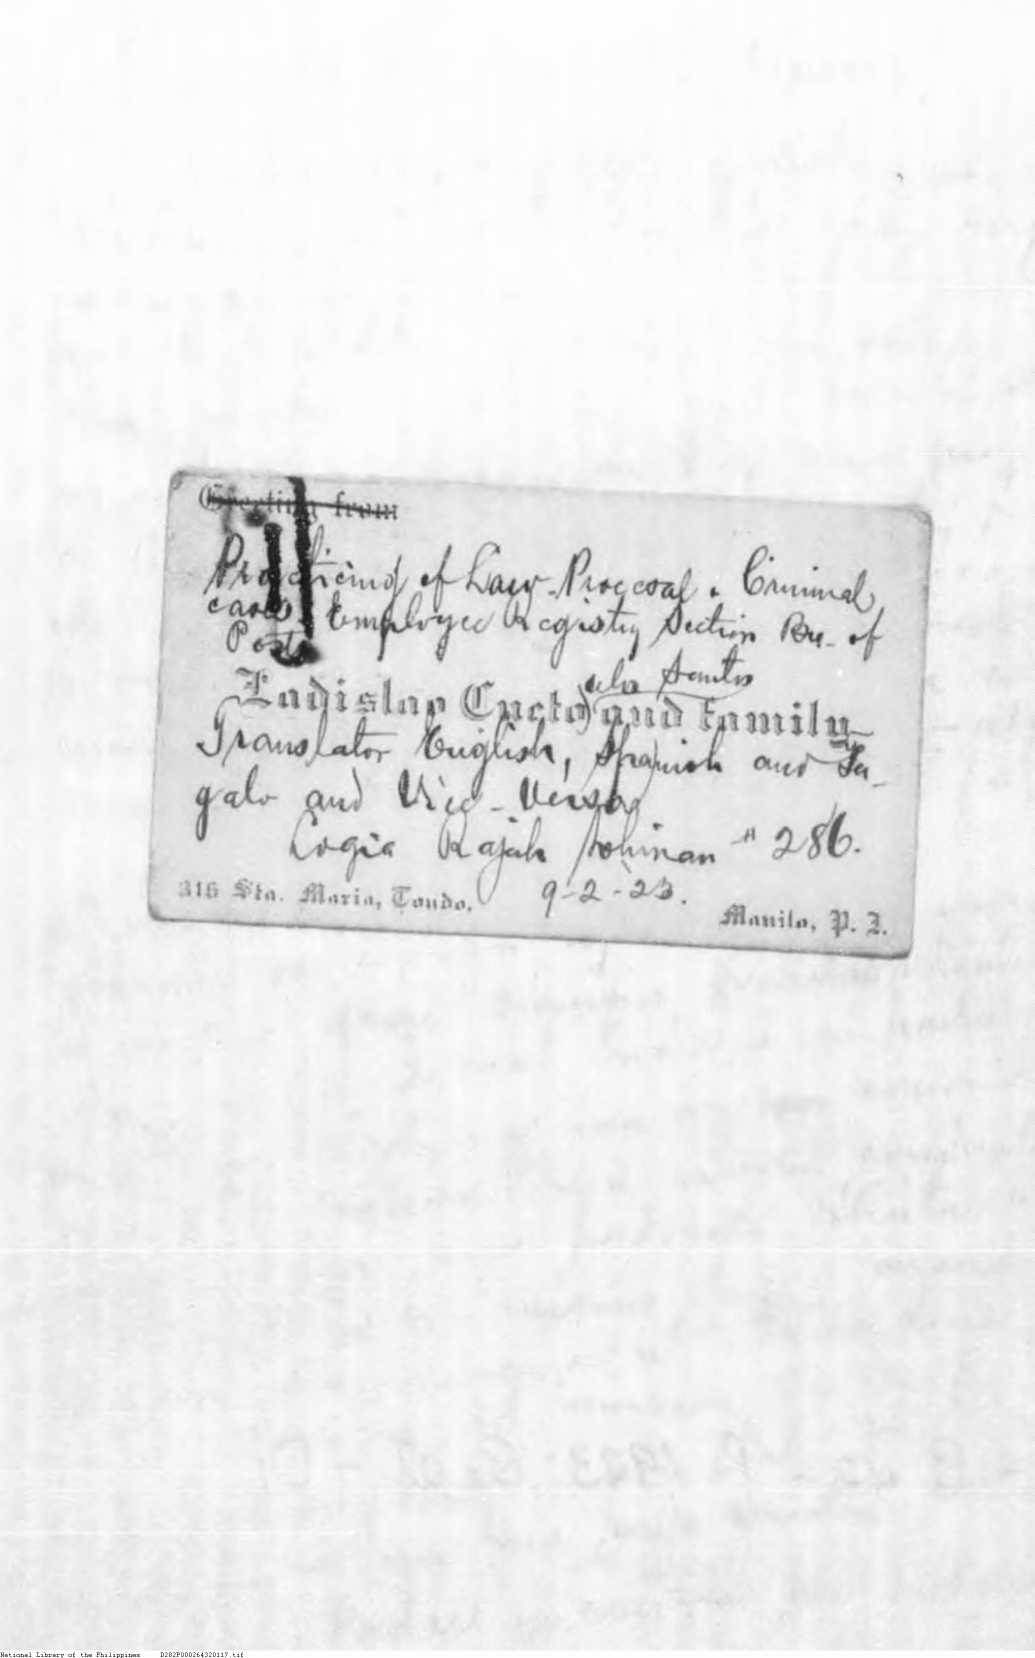 Greeting from
Practicing of Law - Proccoal & Criminal
cases. Employee Registry Section Bu. of
Posts
de los Santos
Ladislao Cueto) and family
Translator English, Spanish and Ta-
galo and Vice-Versa
Logia Rajah Soliman # 286.
9-2-23.
316 Sta. Maria, Tondo.
Manila, P. I.
National Library of the Philippines D282P000264320117.tif